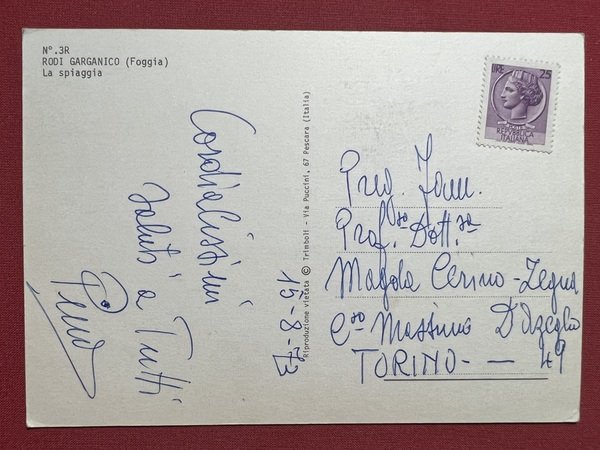 N°.3R
RODI GARGANICO (Foggia)
La spiaggia
Cordialissimi
saluti a Tutti
Pino
15-8-73
Riproduzione vietata © Trimboli - Via Puccini, 67 Pescara (Italia)
LIRE 25
POSTE
REPVBBLICA
ITALIANA
Preg. Fam.
Prof.ssa Dott.ssa
Magda Cerino-Zegna
C.so Massimo D'Azeglio
TORINO-- 49